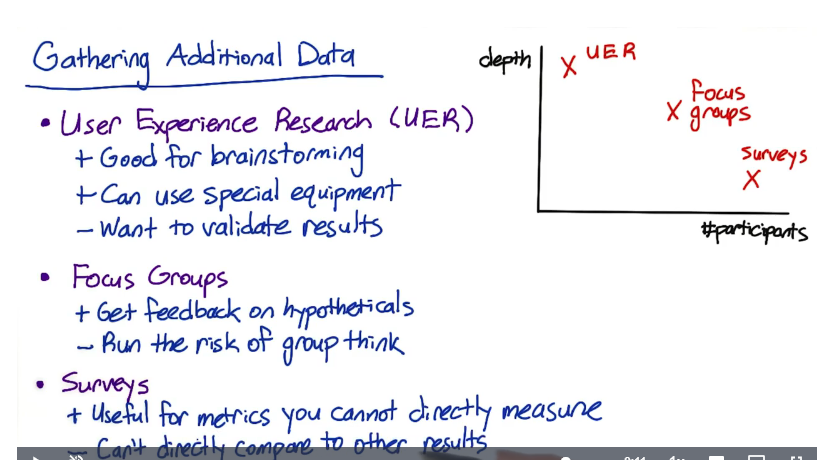 Gathering Additional Data
• User Experience Research (UER)
+ Good for brainstorming
+ Can use special equipment
- Want to validate results
• Focus Groups
+ Get feedback on hypotheticals
- Run the risk of group think
• Surveys
+ Useful for metrics you cannot directly measure
- Can't directly compare to other results
depth
X UER
X Focus
groups
Surveys
X
#participants